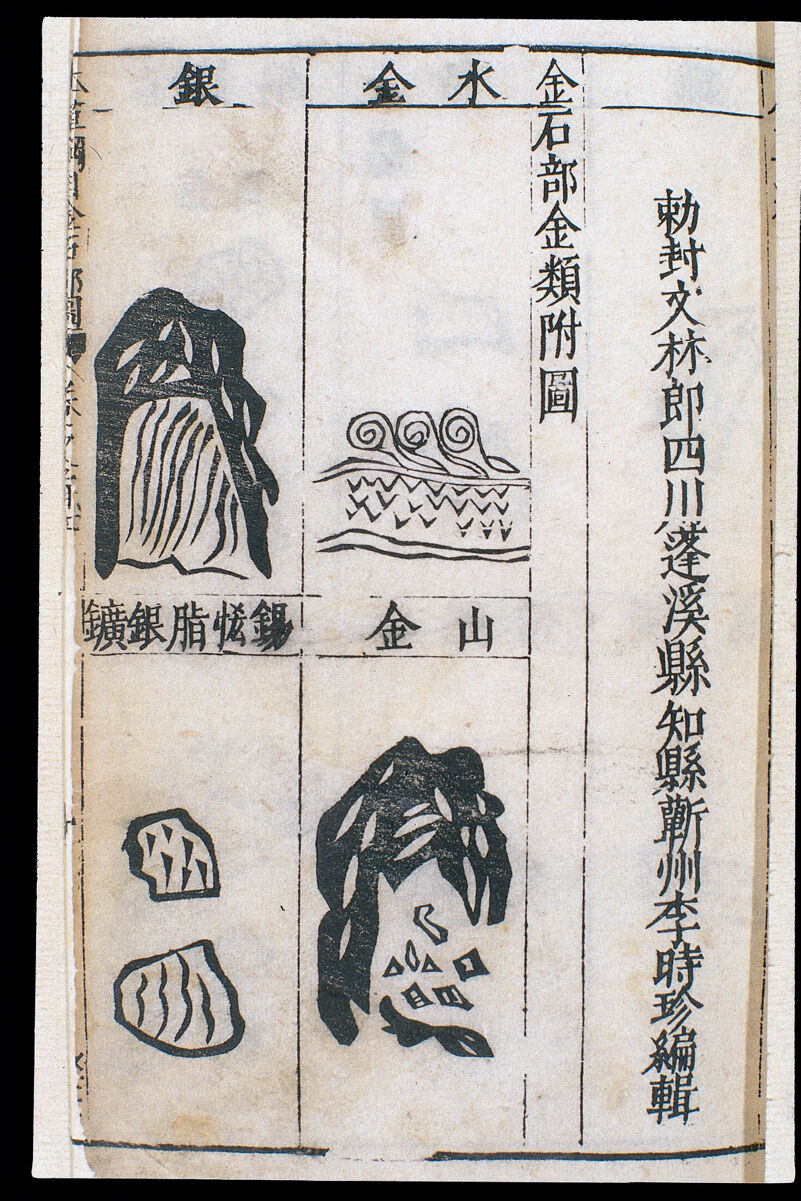 勅封文林郎四川蓬溪縣知縣蘄州李時珍編輯
金石部金類附圖
水金
山金
銀
錫恡脂銀鑛